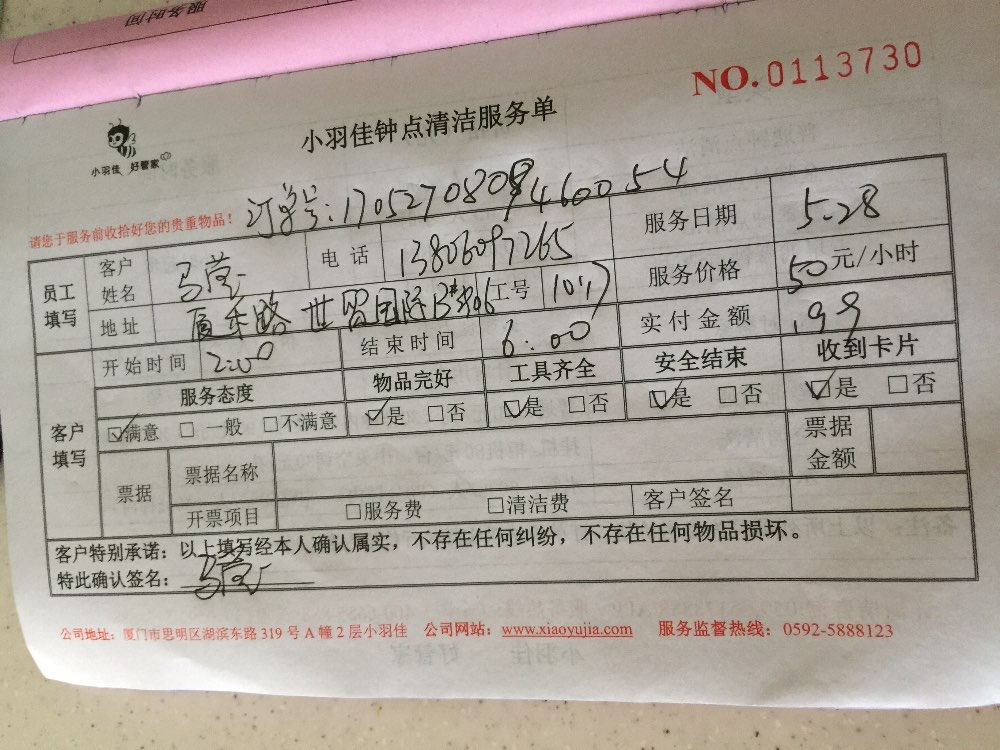 服务时间
NO.0113730
小羽佳 好管家
小羽佳钟点清洁服务单
请您于服务前收拾好您的贵重物品！ 订单号：1705270809460054
员工填写 客户姓名 马莹 电话 13806097265 服务日期 5.28
地址 世贸国际B 工号 1017 服务价格 50元/小时
开始时间 2:00 结束时间 6:00 实付金额 199
客户填写 服务态度 物品完好 工具齐全 安全结束 收到卡片
☑满意 □一般 □不满意 ☑是 □否 ☑是 □否 ☑是 □否 ☑是 □否
票据 票据名称 票据金额
开票项目 □服务费 □清洁费 客户签名
客户特别承诺：以上填写经本人确认属实，不存在任何纠纷，不存在任何物品损坏。
特此确认签名：马莹
公司地址：厦门市思明区湖滨东路 319 号 A 幢 2 层小羽佳 公司网站：www.xiaoyujia.com 服务监督热线：0592-5888123